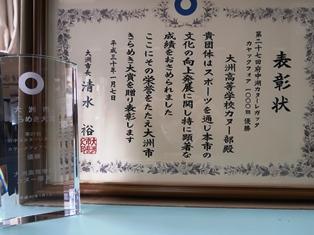 表彰状
第二十七回府中湖カヌーレガッタ
カヤックフォア 1000m 優勝
大洲高等学校カヌー部殿
貴団体はスポーツを通じ本市の
文化の向上発展に関し特に顕著な
成績をおさめられました
ここにその栄誉をたたえ大洲市
きらめき大賞を贈り表彰します
平成三十年一月七日
大洲市長 清水 裕
大洲市
きらめき大賞
優勝